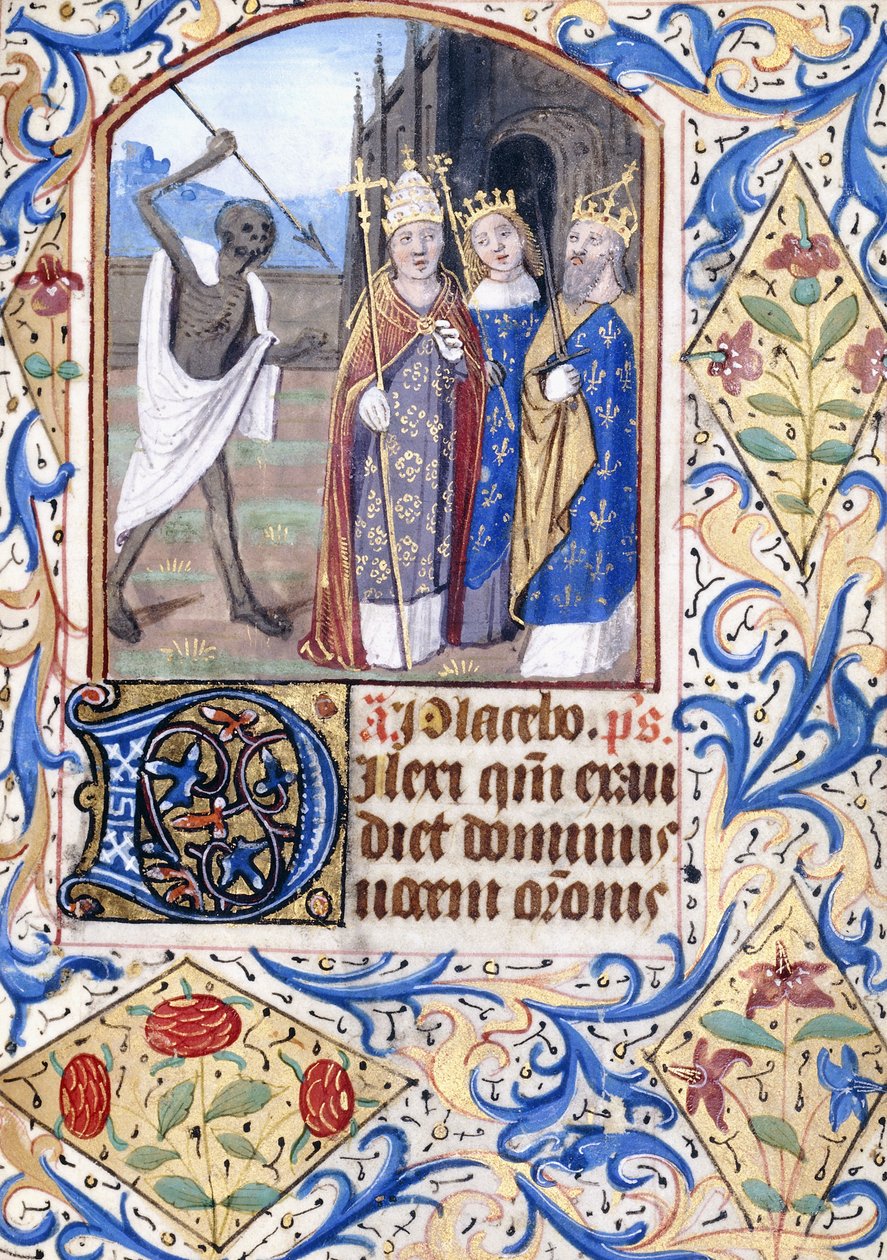 ā. Placebo. p̄s.
Dilexi qm̄ exau
diet dominus
uocem or̄onis